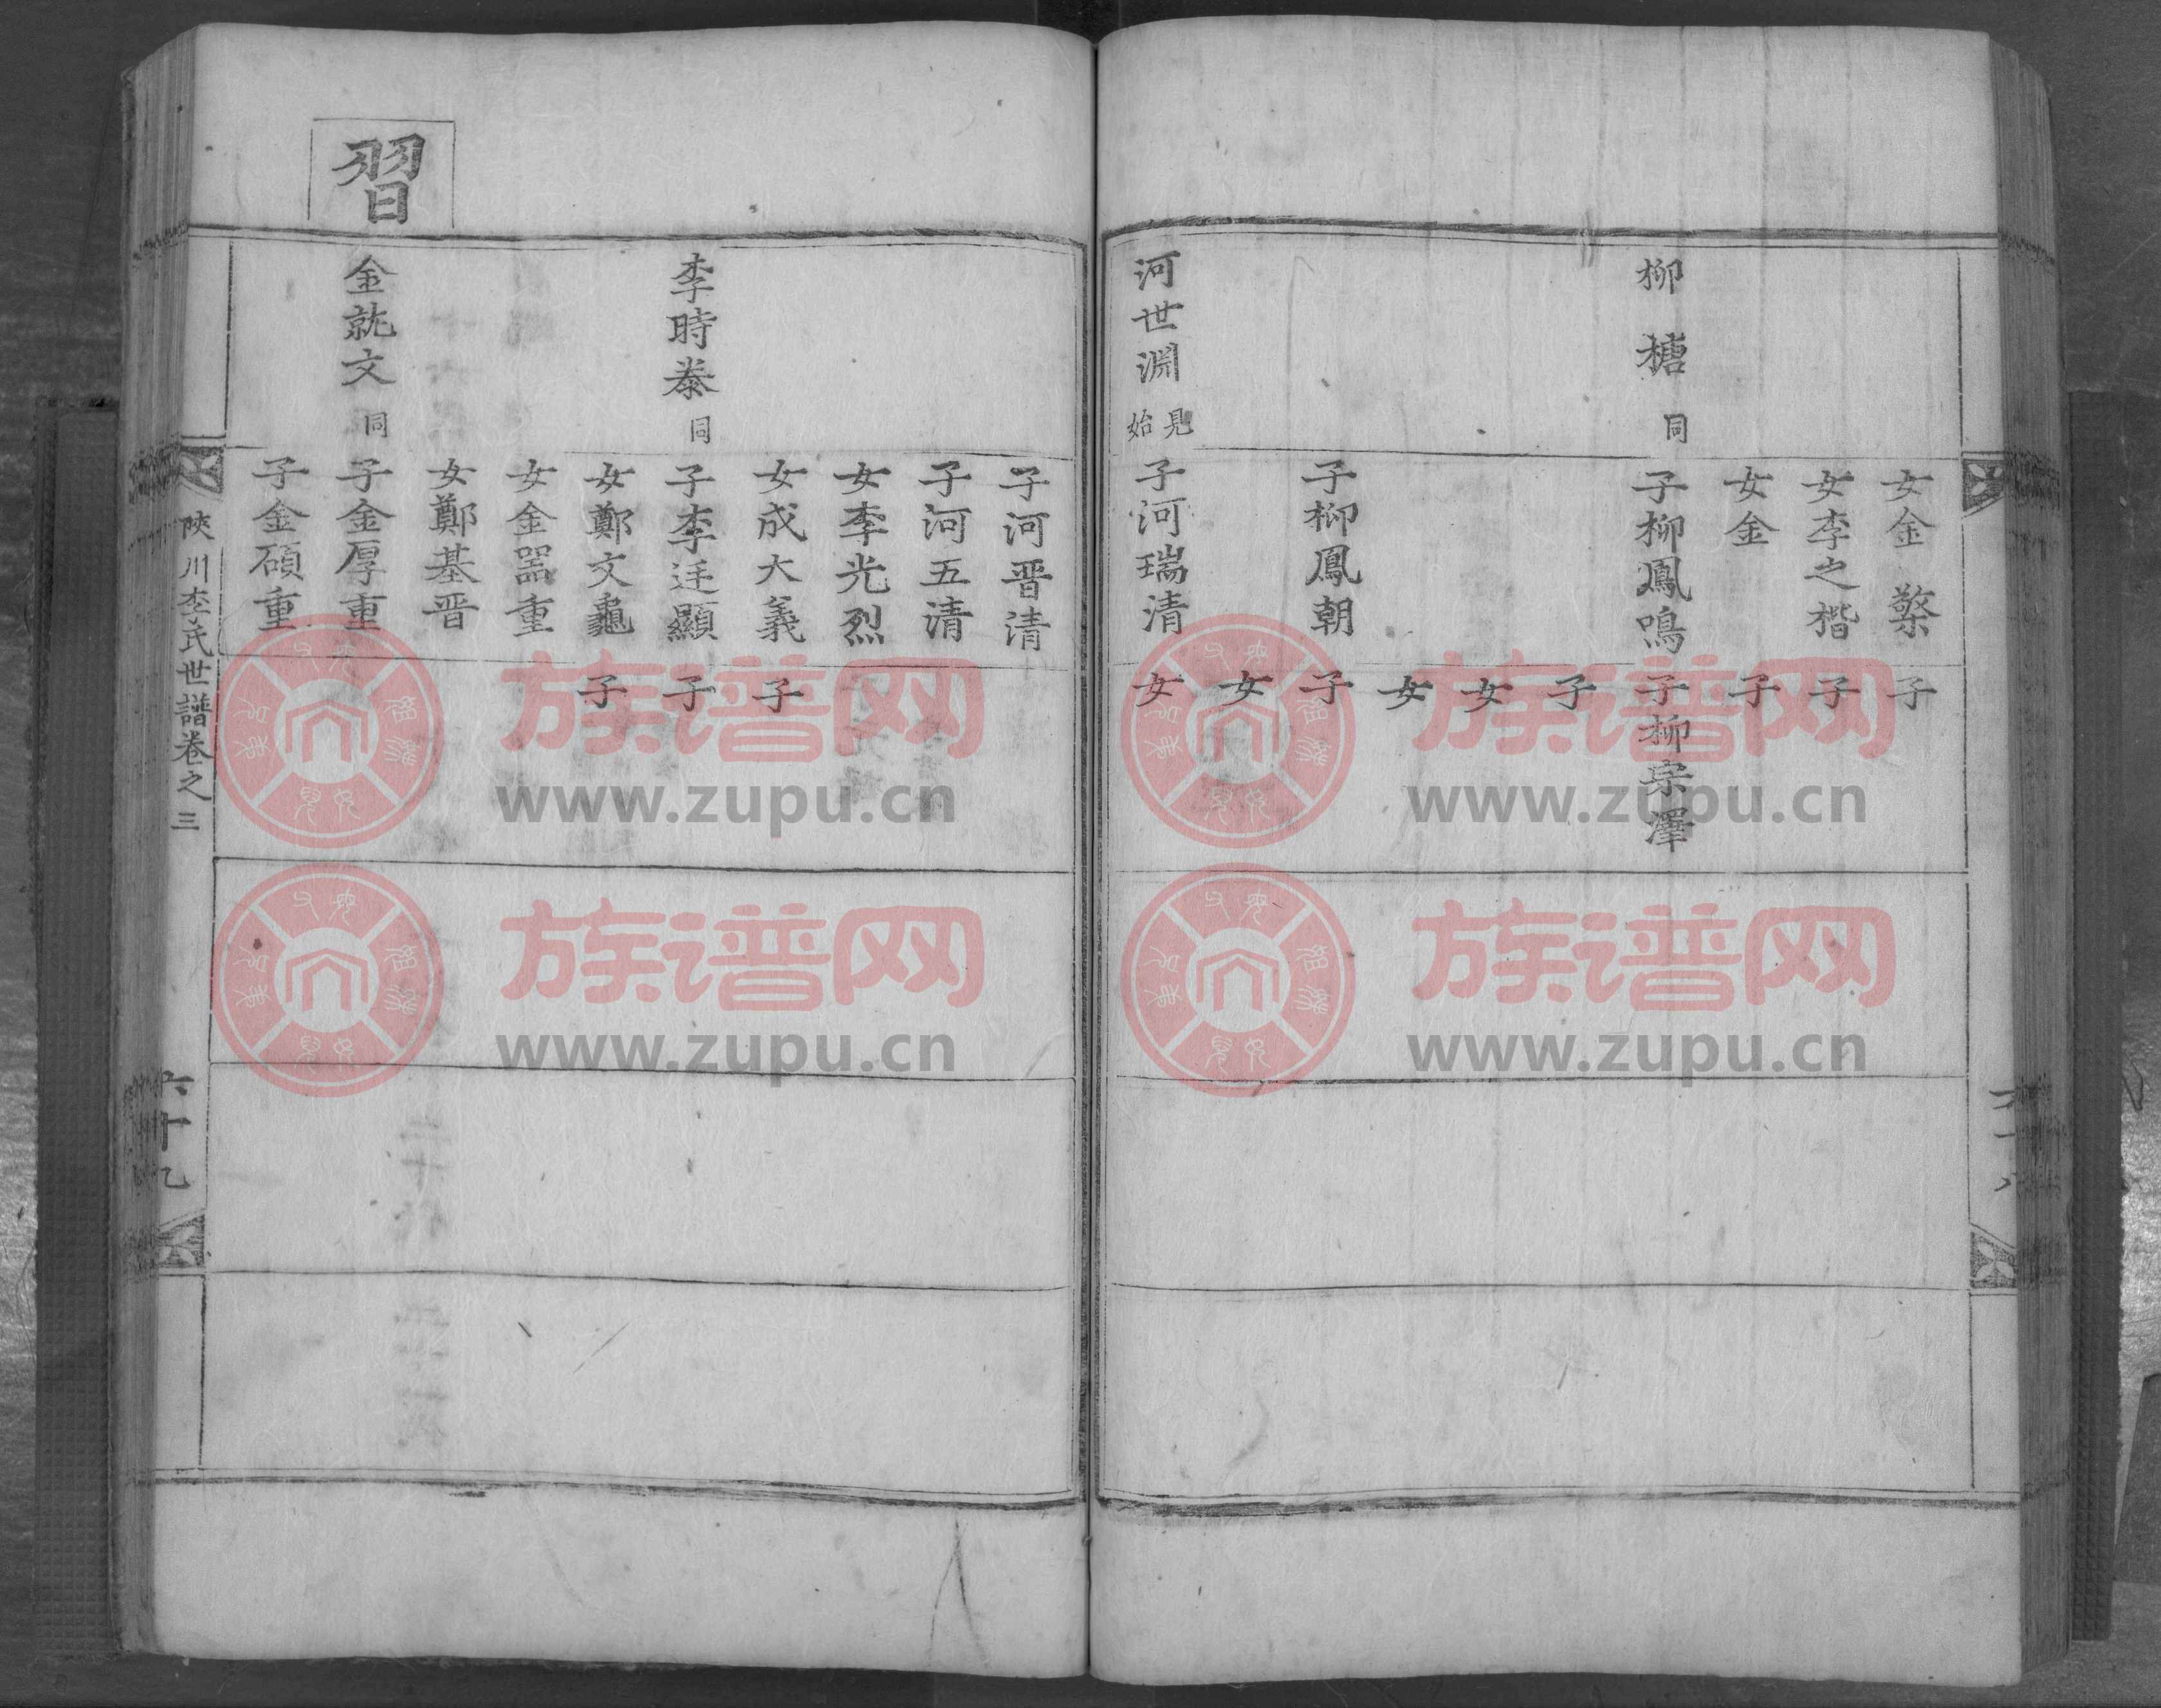 柳楿同
河世淵見始
女金檠
女李之楷
女金
子柳鳳鳴
子柳鳳朝
子河瑞清
子
子
子
子柳宗澤
子
女
女
子
女
女
六十八
習
李時泰同
金就文同
子河晋清
子河五清
女李光烈
女成大義
子李廷顯
女鄭文龜
女金器重
女鄭基晋
子金厚重
子金碩重
子
子
子
陜川李氏世譜卷之三
六十九
族谱网
www.zupu.cn
族谱网
www.zupu.cn
族谱网
www.zupu.cn
族谱网
www.zupu.cn